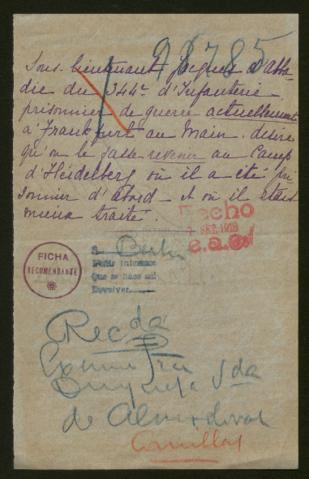 98785
Sous-lieutenant Jacques d'Abba-
die du 344e d'Infanterie
prisonnier de guerre actuellement
à Frankfurt au Main. désire
qu'on le fasse revenir au Camp
d'Heidelberg où il a été pri
sonnier d'abord - et où il était
mieux traité.
Hecho
1918
FICHA
RECOMENDANTE
A Berlin
Que se hace así
Devolver
Recda
Exma Sra
Duquesa Vda
de Almodóvar
Comillas